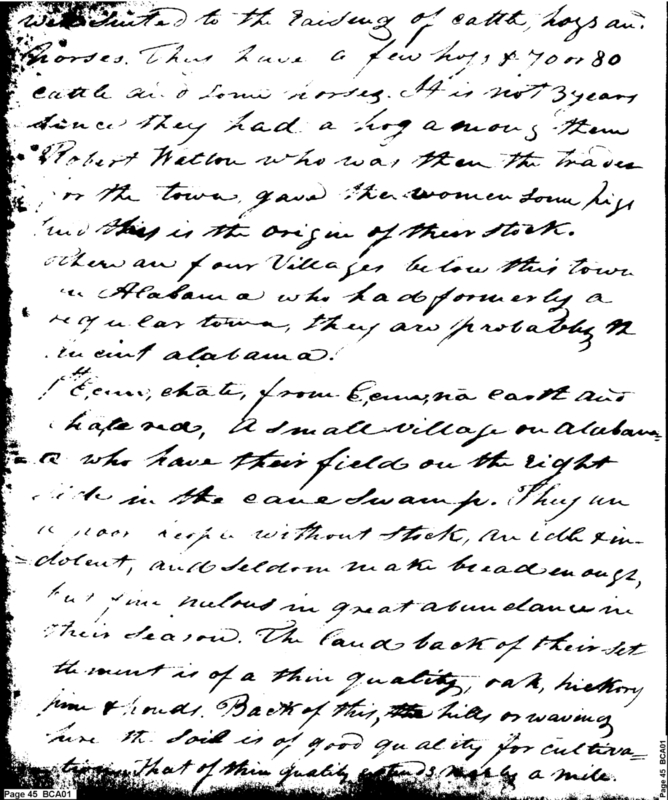 well suited to the raising of cattle, hogs and
horses. They have a few hogs & 70 or 80
cattle and some horses. It is not 3 years
since they had a hog among them
Robert Walton who was then the trader
for the town, gave the women some pigs
and this is the origin of their stock.
There are four Villages below this town
on Alabama who had formerly a
regular town, they are probably the
ancient alabama.
1st E,cun,chate, from E,cun,na earth and
chate red, A small village on Alabam=
=a who have their field on the right
side in the cane swamp. They are
a poor people without stock, are idle & in=
=dolent, and seldom make bread enough,
but fine melons in great abundance in
their season. The land back of their set
tlement is of a thin quality, oak, hickory
pine & ponds. Back of this, hills or waving
here the soil is of good quality for cultiva=
=tion that of thin quality extends nearly a mile.
Page 45 BCA01
Page 45 BCA01